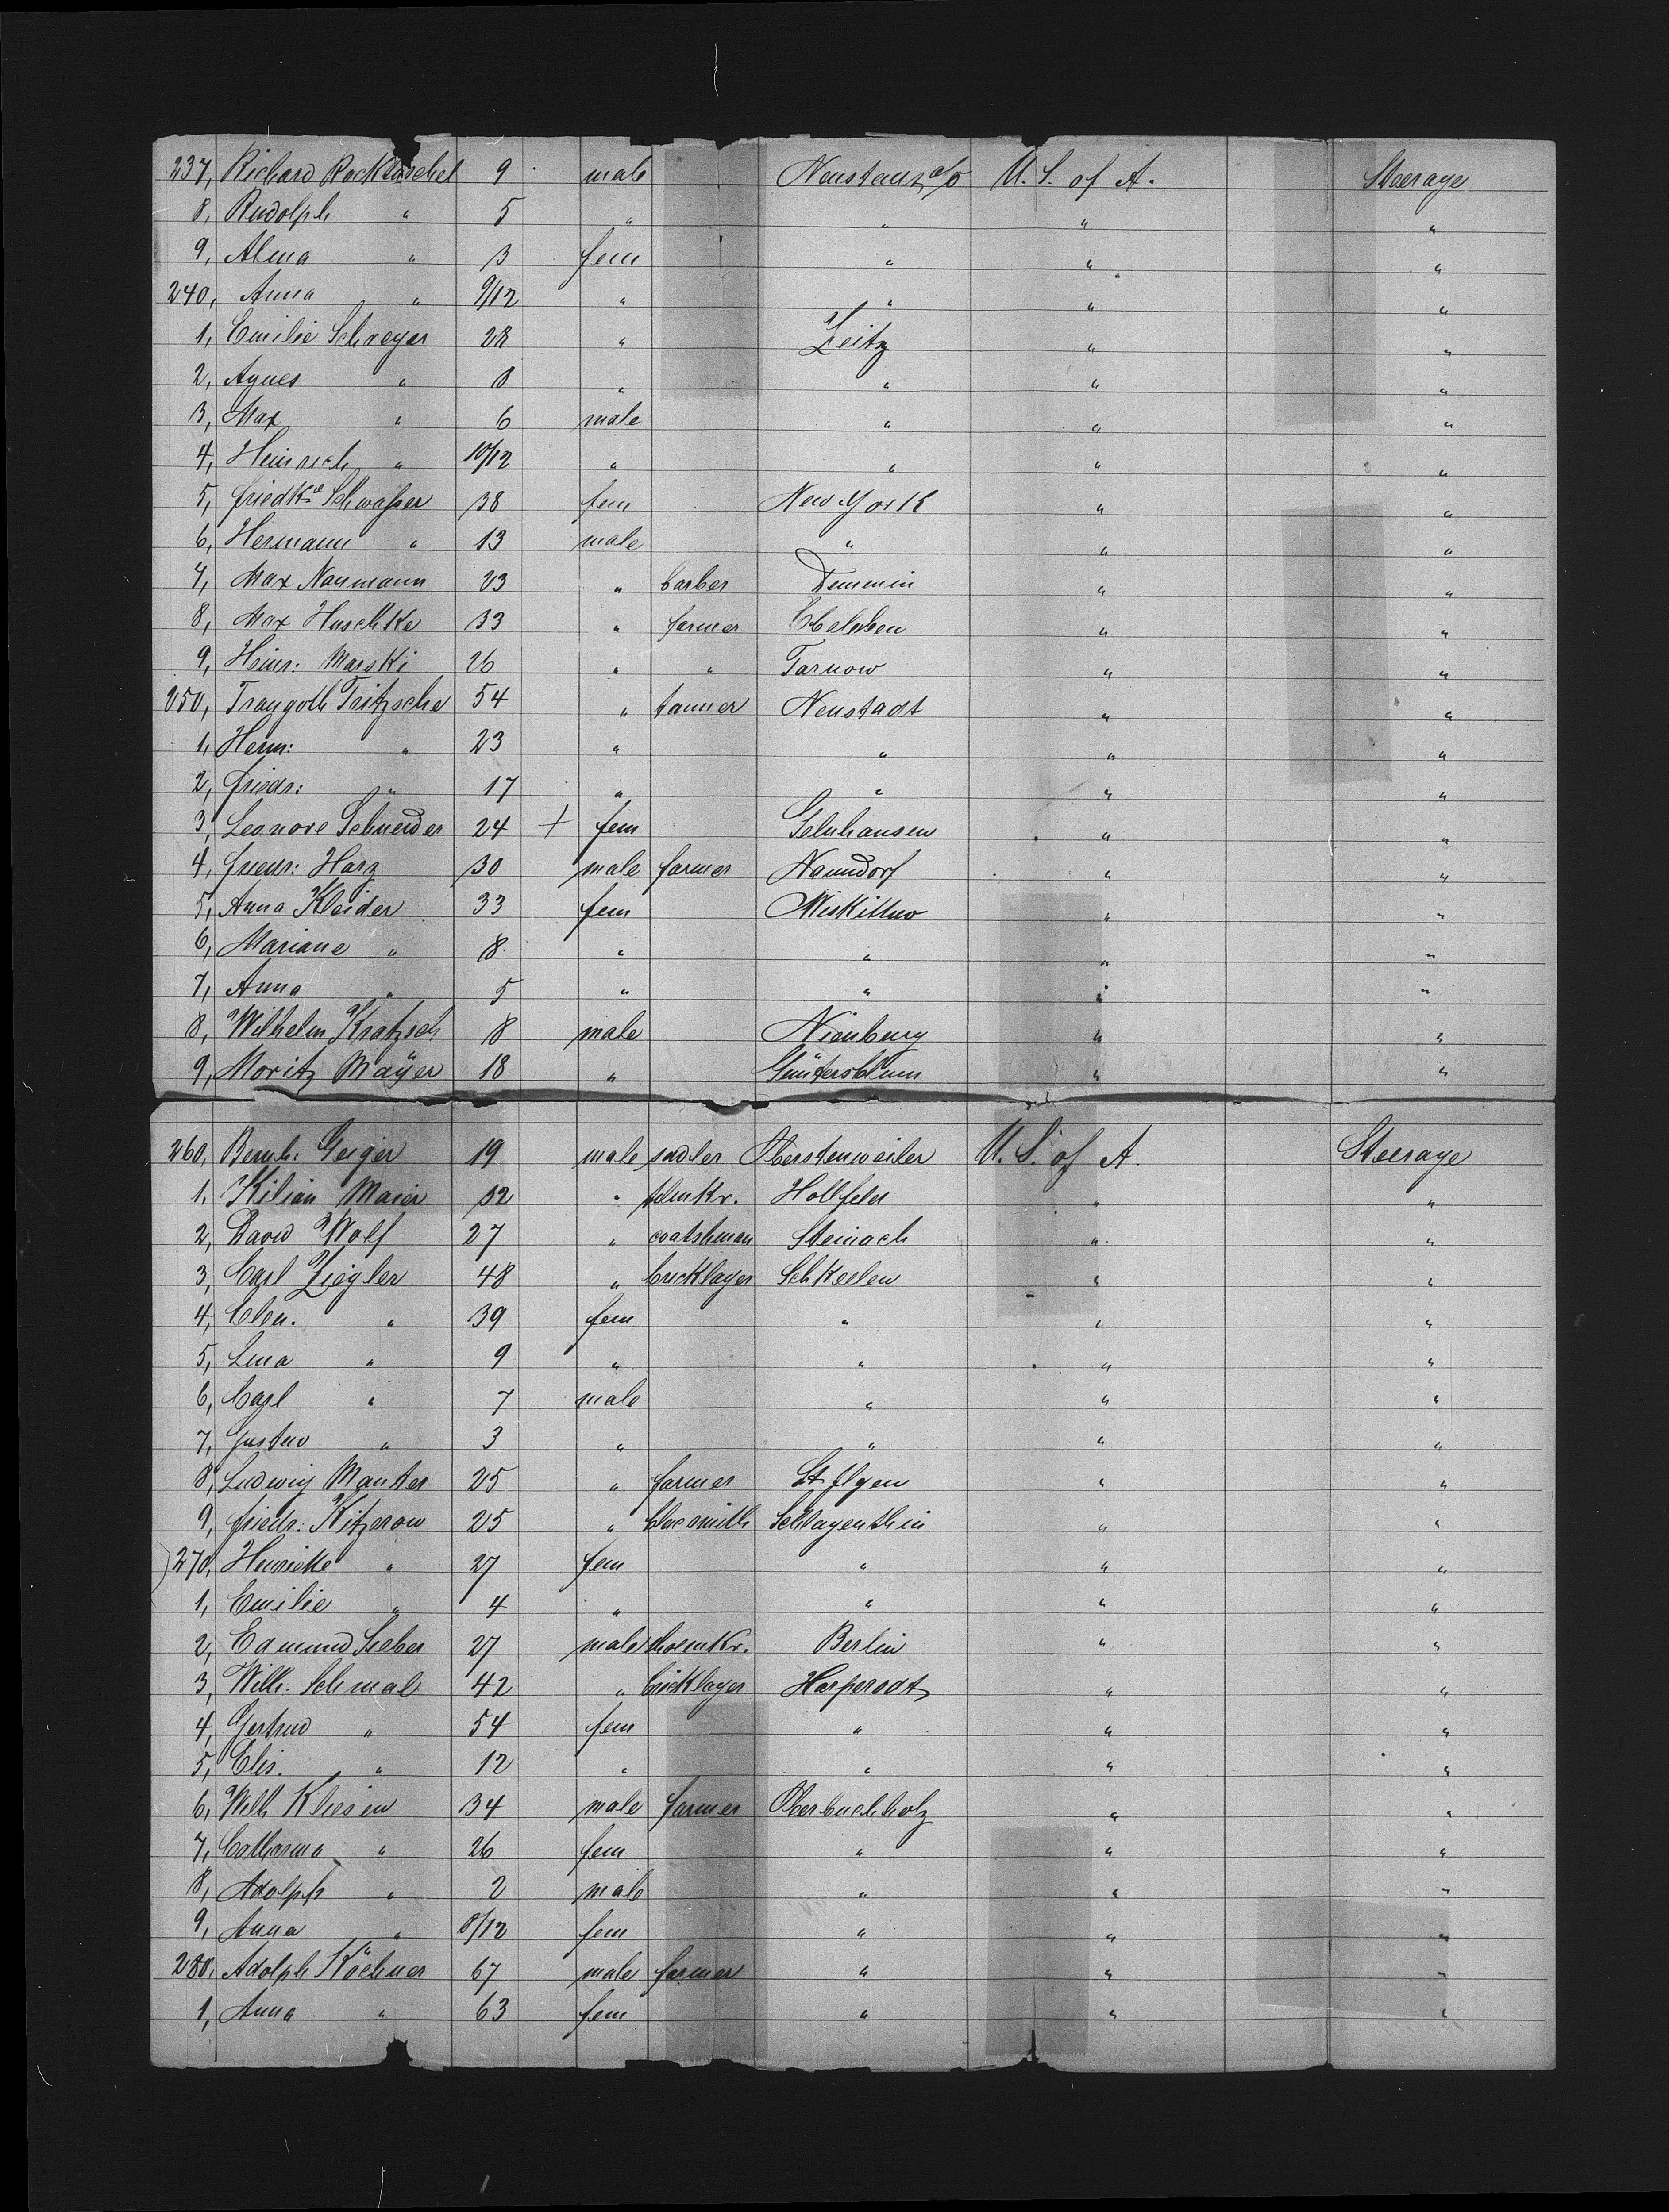 237, Richard 9 male Neustadt a/O U. S. of A. Steerage
8, Rudolph " 5 " " " "
9, Alma " 3 fem " " "
240, Anna " 9/12 " " " "
1, Emilie Schreyer 28 " Zeitz " "
2, Agnes " 8 " " " "
3, Max " 6 male " " "
4, Heinrich " 10/12 " " " "
5, Friedke Schwasser 38 fem New York " "
6, Hermann " 13 male " " "
7, Max Naumann 23 " barber Demmin " "
8, Max Huschke 33 " farmer Ebeleben " "
9, Heinr: Marski 26 " " Tarnow " "
250, Traugott Fritzsche 54 " tanner Neustadt " "
1, Herm: " 23 " " " "
2, Friedr: " 17 " " " "
3, Leonore Schneider 24 + fem Gelnhausen " "
4, Friedr: Harz 30 male farmer Naundorf " "
5, Anna Kleider 33 fem " "
6, Mariane " 8 " " " "
7, Anna " 5 " " " "
8, Wilhelm Kratzsch 8 male Nienburg " "
9, Moritz Mayer 18 " Güntersblum " "
260, Bernh: Geiger 19 male sadler Oberstenweiler U. S. of A. Steerage
1, Kilian Maier 32 " Hollfeld " "
2, David Wolf 27 " coatshman Steinach " "
3, Carl Ziegler 48 " bricklayer Schkoelen " "
4, " 39 fem " " "
5, Lina " 9 " " " "
6, Carl " 7 male " " "
7, Gustav " 3 " " " "
8, Ludwig Manter 25 " farmer St. Ilgen " "
9, Friedr: Kitzerow 25 " Schlagenthin " "
270, Henriette " 27 fem " " "
1, Emilie " 4 " " " "
2, Edmund Sieber 27 male shoemkr. Berlin " "
3, Wilh. Schmal 42 " bricklayer " "
4, Gertrud " 54 fem " " "
5, Elis. " 12 " " " "
6, Wilh Kliesen 34 male farmer Oberbuchholz " "
7, Catharina " 26 fem " " "
8, Adolph " 2 male " " "
9, Anna " 8/12 fem " " "
280, Adolph Köchner 67 male farmer " " "
1, Anna " 63 fem " " "